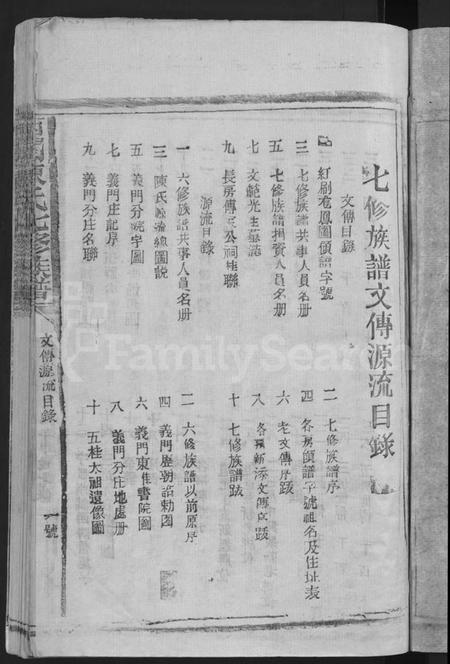 七修族譜文傳源流目錄
文傳目錄
紅刷在鳳圖領譜字號
二 七修族譜序
三 七修族譜共事人員名册
四 各房領譜字號祖名及住址表
五 七修族譜捐資人員名册
六 老文傳序跋
七 文範光生墓誌
八 各新添文傳序跋
九 長房傳公祠桂聯
十 七修族譜跋
源流目錄
一 六修族譜共事人員名册
二 六修族譜以前原序
三 陳氏線圖説
四 義門歷朝詔勅圖
五 義門分院宇圖
六 義門東佳書院圖
七 義門庄記序
八 義門分庄地處册
九 義門分庄名聯
十 五桂太祖遺像圖
陳氏七修族譜
文傳源流目錄
一號
FamilySearch